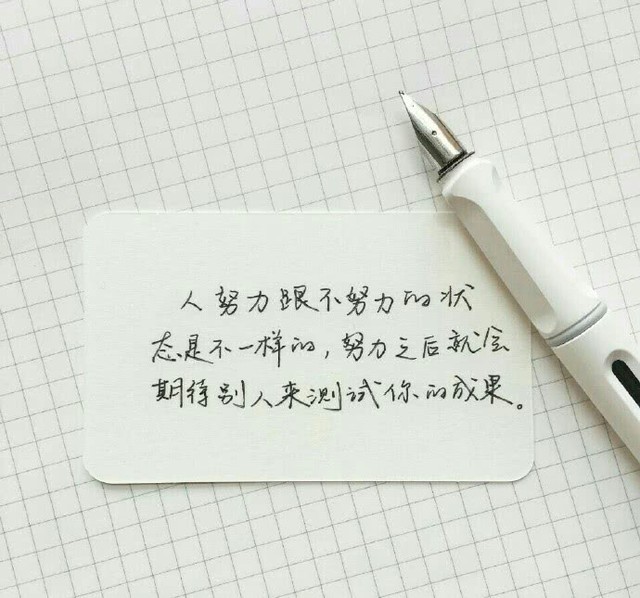 人努力跟不努力的状
态是不一样的，努力之后就会
期待别人来测试你的成果。